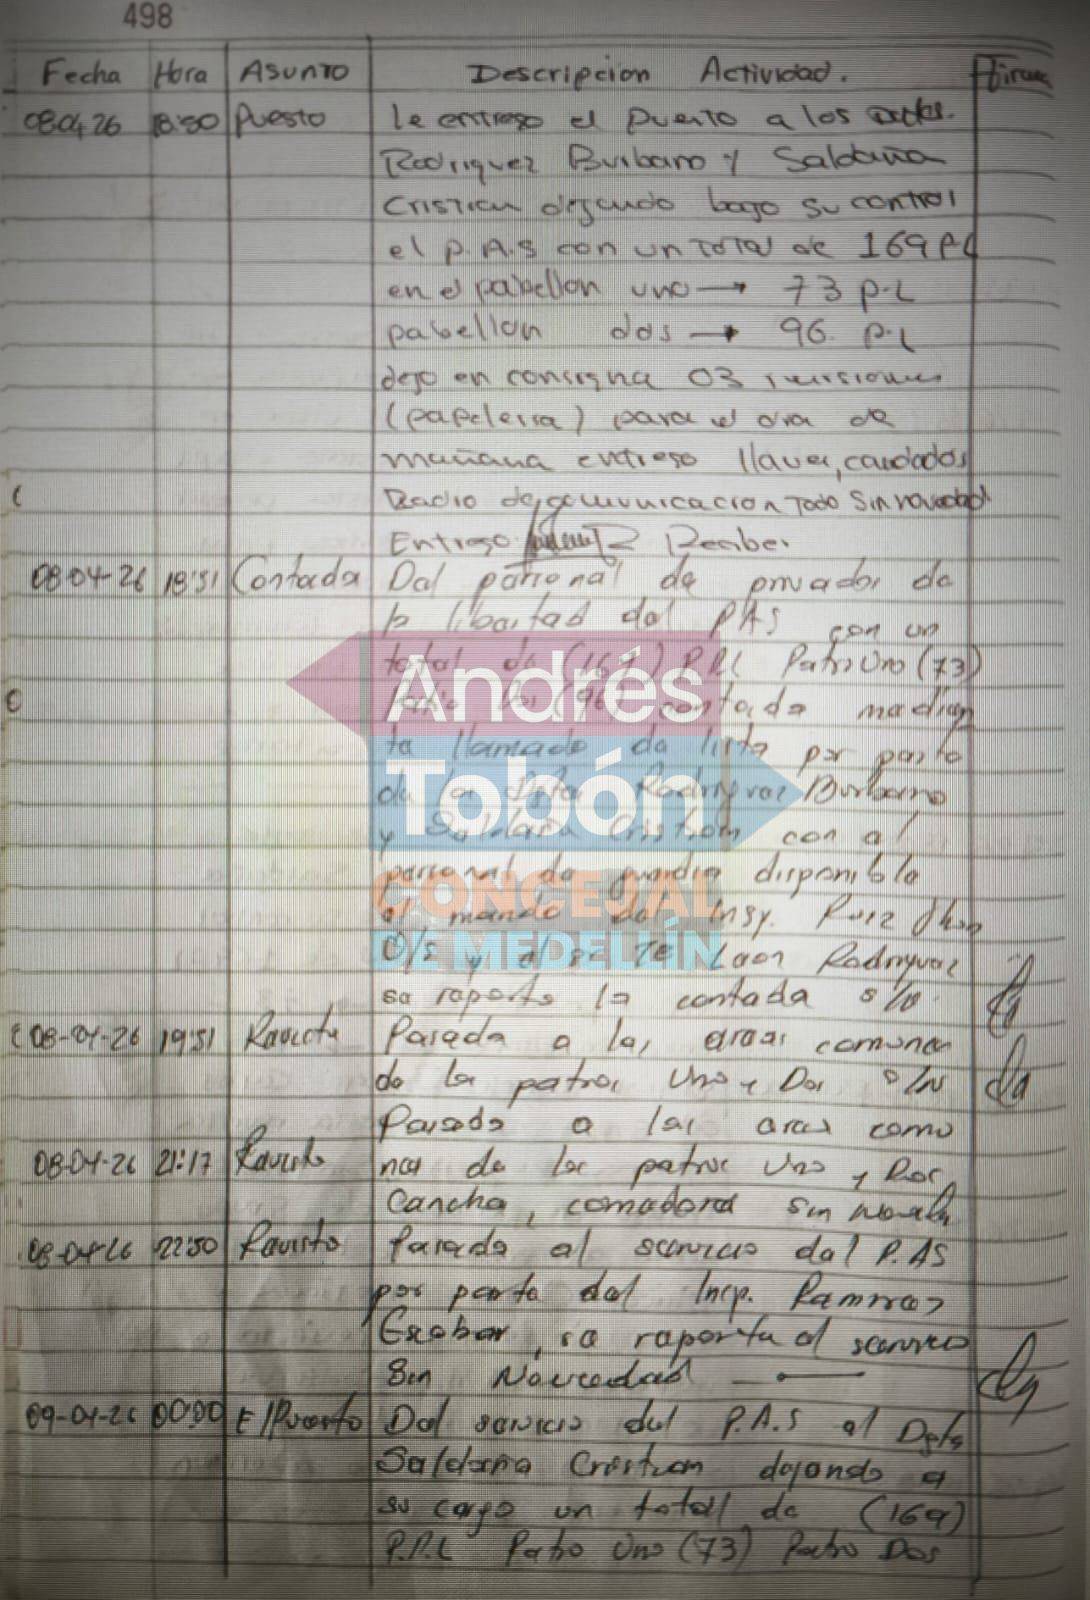 498
Fecha Hora Asunto Descripcion Actividad. Firma
080426 18:50 Puesto le entrego el puesto a los Dctes.
Rodriguez Burbano y Saldaña
Cristian dejando bajo su control
el P.A.S con un Total de 169 P.L
en el pabellon uno → 73 P.L
pabellon dos → 96. P.L
dejo en consigna 03
(papeleria) para el dia de
mañana entrego llaves, candados
Radio de comunicacion Todo Sin novedad
Entrego Recibe.
08-04-26 18:51 Contada Del personal de privados de
la libertad del PAS con un
total de (169) P.P.L Patio Uno (73)
Patio Dos (96) contada median
te llamado de lista por parte
de los Dgtes Rodriguez Burbano
y Saldaña Cristian con el
personal de guardia disponible
al mando del Insp. Ruiz Jhon
O/S y el sr Te Leon Rodriguez
se reporta la contada s/n.
08-04-26 19:51 Revista Pasada a las areas comunes
de los patios Uno y Dos s/n
Pasada a las areas comu
08-04-26 21:17 Revista nes de los patios Uno y Dos
Cancha, comedores sin novedad
08-04-26 22:50 Revista Pasada al servicio del P.AS
por parte del Insp. Ramirez
Escobar, se reporta el servicio
Sin Novedad
09-04-26 00:00 E/Puesto Del servicio del P.A.S al Dgte
Saldaña Cristian dejando a
su cargo un total de (169)
P.P.L Patio Uno (73) Patio Dos
Andrés
Tobón
CONCEJAL
DE MEDELLÍN